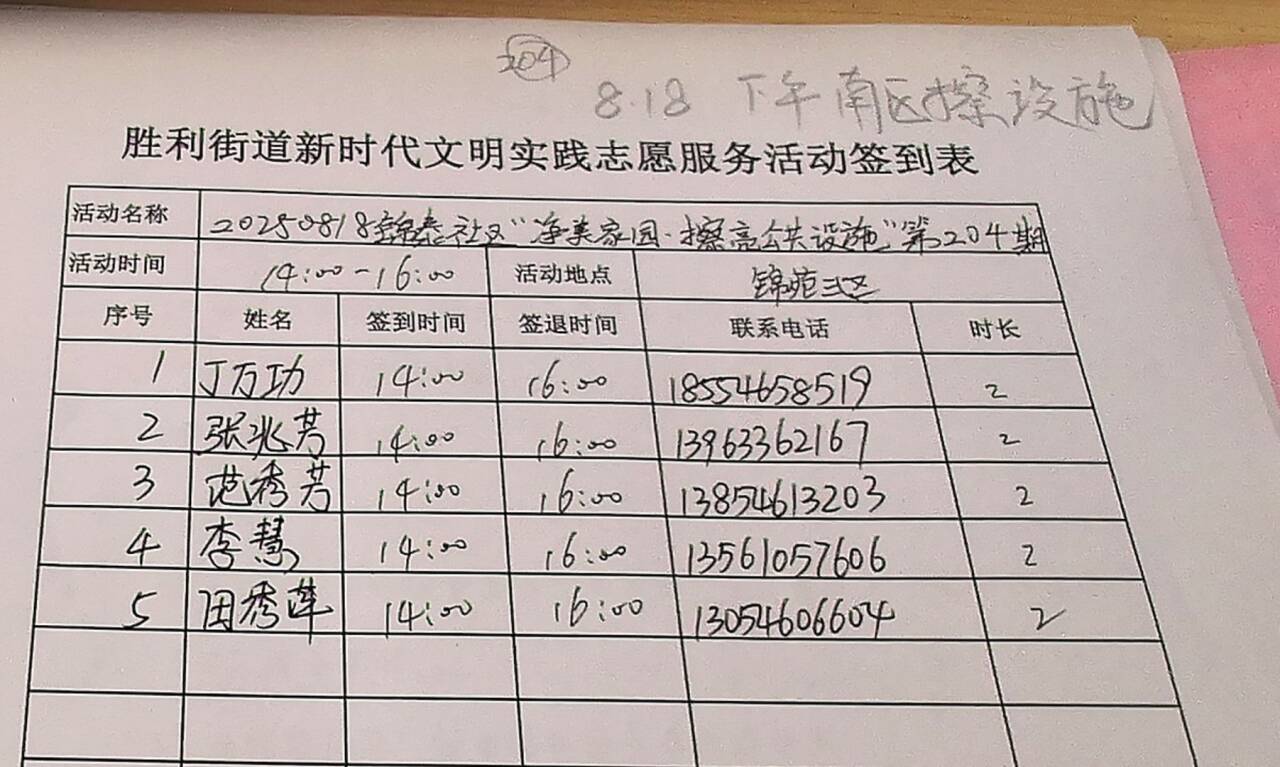 204
8.18 下午南区擦设施
胜利街道新时代文明实践志愿服务活动签到表
活动名称 20250818锦泰社区"净美家园·擦亮公共设施"第204期
活动时间 14:00-16:00 活动地点 锦苑三区
序号 姓名 签到时间 签退时间 联系电话 时长
1 丁万功 14:00 16:00 18554658519 2
2 张兆芳 14:00 16:00 13963362167 2
3 范秀芳 14:00 16:00 13854613203 2
4 李慧 14:00 16:00 13561057606 2
5 田秀萍 14:00 16:00 13054606604 2